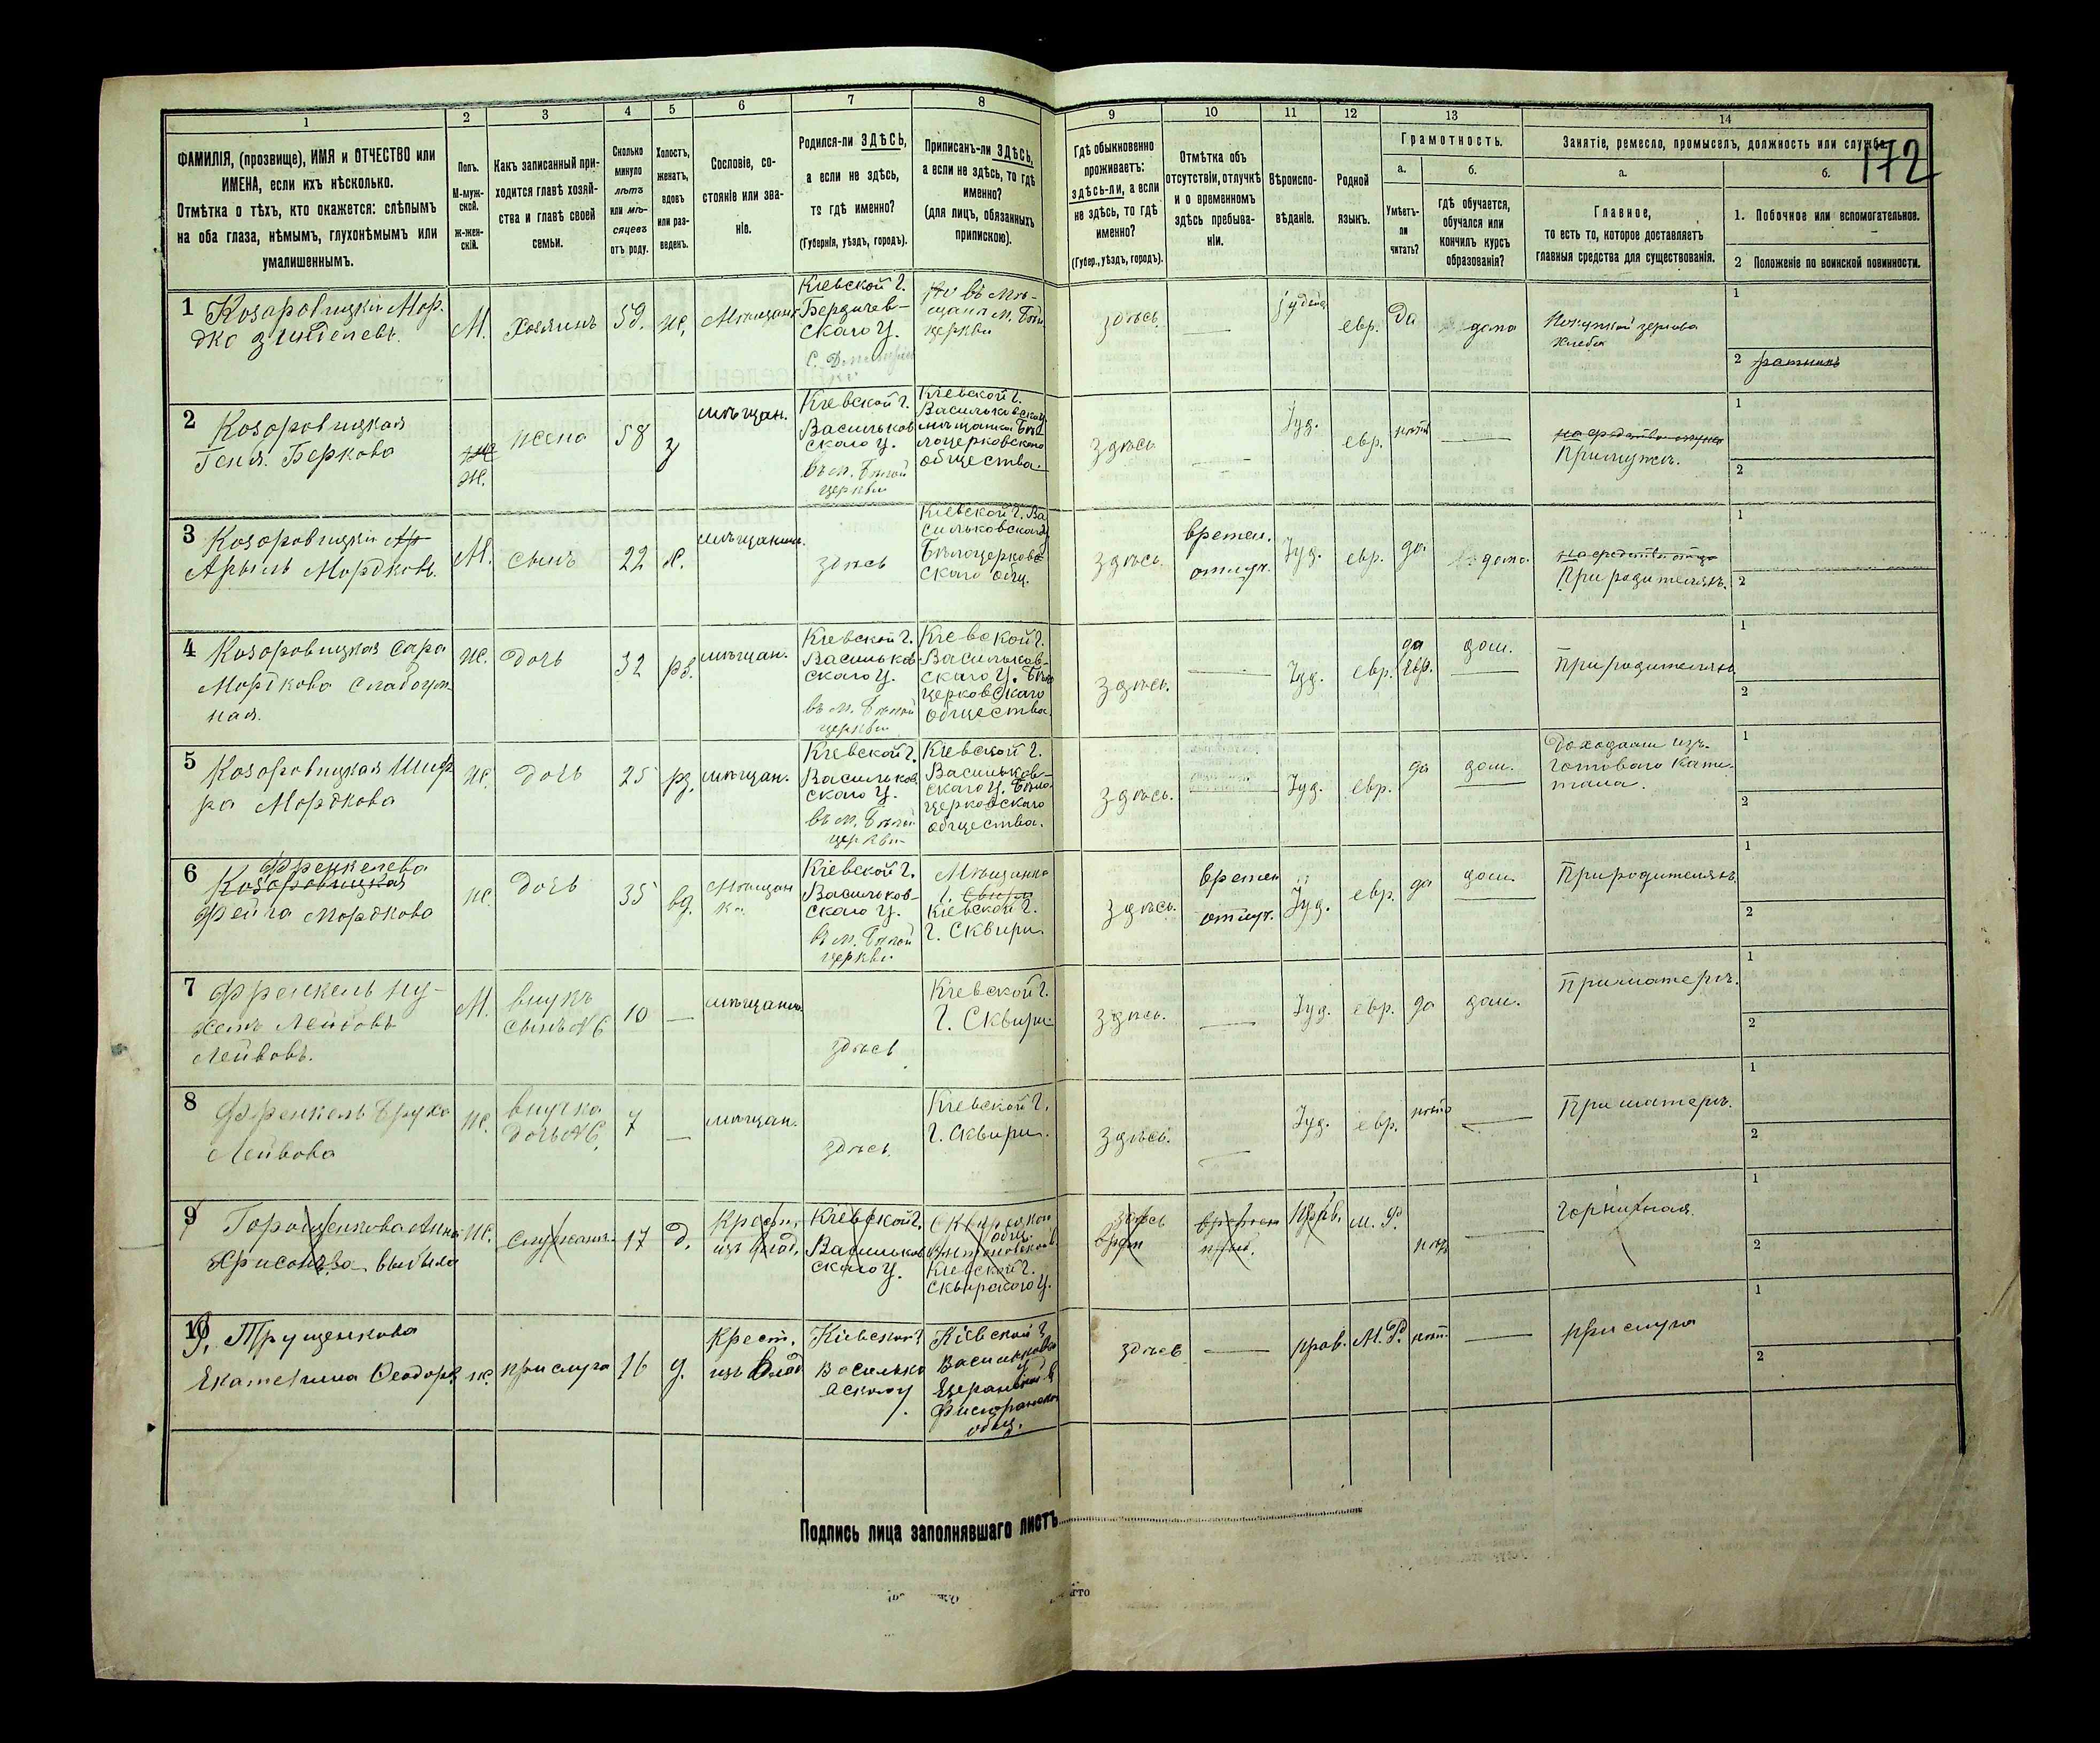 172
1 2 3 4 5 6 7 8 9 10 11 12 13 14
ФАМИЛІЯ, (прозвище), ИМЯ и ОТЧЕСТВО или
ИМЕНА, если ихъ нѣсколько.
Отмѣтка о тѣхъ, кто окажется: слѣпымъ
на оба глаза, нѣмымъ, глухонѣмымъ или
умалишеннымъ.
Полъ.
М-муж-
ской.
Ж-жен-
скій.
Какъ записанный при-
ходится главѣ хозяй-
ства и главѣ своей
семьи.
Сколько
минуло
лѣтъ
или мѣ-
сяцевъ
отъ роду.
Холостъ,
женатъ,
вдовъ
или раз-
веденъ.
Сословіе, со-
стояніе или зва-
ніе.
Родился-ли ЗДѢСЬ,
а если не здѣсь,
то гдѣ именно?
(Губернія, уѣздъ, городъ).
Приписанъ-ли ЗДѢСЬ,
а если не здѣсь, то гдѣ
именно?
(для лицъ, обязанныхъ
припискою).
Гдѣ обыкновенно
проживаетъ:
здѣсь-ли, а если
не здѣсь, то гдѣ
именно?
(Губер., уѣздъ, городъ).
Отмѣтка объ
отсутствіи, отлучкѣ
и о временномъ
здѣсь пребыва-
ніи.
Вѣроиспо-
вѣданіе.
Родной
языкъ.
Грамотность.
а.
Умѣетъ-
ли
читать?
б.
гдѣ обучается,
обучался или
кончилъ курсъ
образованія?
Занятіе, ремесло, промыселъ, должность или служба.
а.
Главное,
то есть то, которое доставляетъ
главныя средства для существованія.
б.
1. Побочное или вспомогательное.
2 Положеніе по воинской повинности.
1 Козоровицкій Мор-
дко Зинделевъ.
М.
хозяинъ
59.
ж.
Мѣщан.
Кіевской г.
Бердичев-
скаго у.
церкви
здѣсь.
—
іудей.
евр.
да
дома
Покупкой зернова
хлеба
1
2 ратникъ
2 Козоровицкая
Геня Беркова
Ж.
жена
58
з
мѣщан.
Кіевской г.
Васильков
скаго у.
въ м. Бѣлой
церкви
Кіевской г.
Васильковскаго у.
общества.
здѣсь
—
Іуд.
евр.
—
на средства мужа
При мужѣ.
1
2
3 Козоровицкій Ар
Арыль Мордковъ.
М.
сынъ
22
х.
мѣщанин.
здѣсь
Кіевской г. Ва
сильковскаго у.
Бѣлоцерков
скаго общ.
здѣсь.
времен.
отлуч.
Іуд.
евр.
да
дома
на средства отца
При родителяхъ.
1
2
4 Козоровицкая Сара
Мордкова слабоум-
ная.
ж.
дочь
32
рз.
мѣщан.
Кіевской г.
Васильков-
скаго у.
въ м. Бѣлой
церкви
Кіевской г.
Васильков-
скаго у. Бѣло
церковскаго
общества.
здѣсь.
—
Іуд.
евр.
да
евр.
дом.
—
При родителяхъ
1
2
5 Козоровицкая Шиф
ра Мордкова
ж.
дочь
25
рз.
мѣщан.
Кіевской г.
Васильков
скаго у.
въ м. Бѣлой
церкви
Кіевской г.
Васильков-
скаго у. Бѣло-
церковскаго
общества.
здѣсь.
—
Іуд.
евр.
да
дом.
—
Доходами изъ
готоваго капи-
тала.
1
2
6 Френкелева
Козоровицкая
Фейга Мордкова
ж.
дочь
35
вд.
Мѣщан
ка
Кіевской г.
Васильков-
скаго у.
въ м. Бѣлой
церкви
Мѣщанка
Кіевской г.
г. Сквири
здѣсь.
времен
отлуч.
Іуд.
евр.
да
дом.
—
При родителяхъ
1
2
7 Френкель Ну-
хемъ Лейбовъ
Лейбовъ.
М.
внукъ
сынъ №6
10
—
мѣщанинъ.
здѣсь
Кіевской г.
г. Сквири
здѣсь.
—
Іуд.
евр.
да
дом.
При матери.
1
2
8 Френкель Бруха
Лейбова
ж.
внучка
дочь №6
7
—
мѣщан.
здѣсь.
Кіевской г.
г. Сквири.
здѣсь.
—
Іуд.
евр.
—
При матери.
1
2
9
ж.
служанк.
17
д.
Крест.
изъ влад.
Кіевской г.
Васильков
скаго у.
Кіевской г.
Сквирскаго у.
здѣсь
Прав.
м. Р.
—
горничная.
1
2
10
9. Трущенкова
Екатерина Феодоров
ж.
прислуга
16
д.
Крест.
изъ влад
Кіевской г
Василько
вскаго у.
Кіевской г.
Васильковск
общ.
здѣсь
—
прав.
М. Р.
—
прислуга
1
2
Подпись лица заполнявшаго листъ